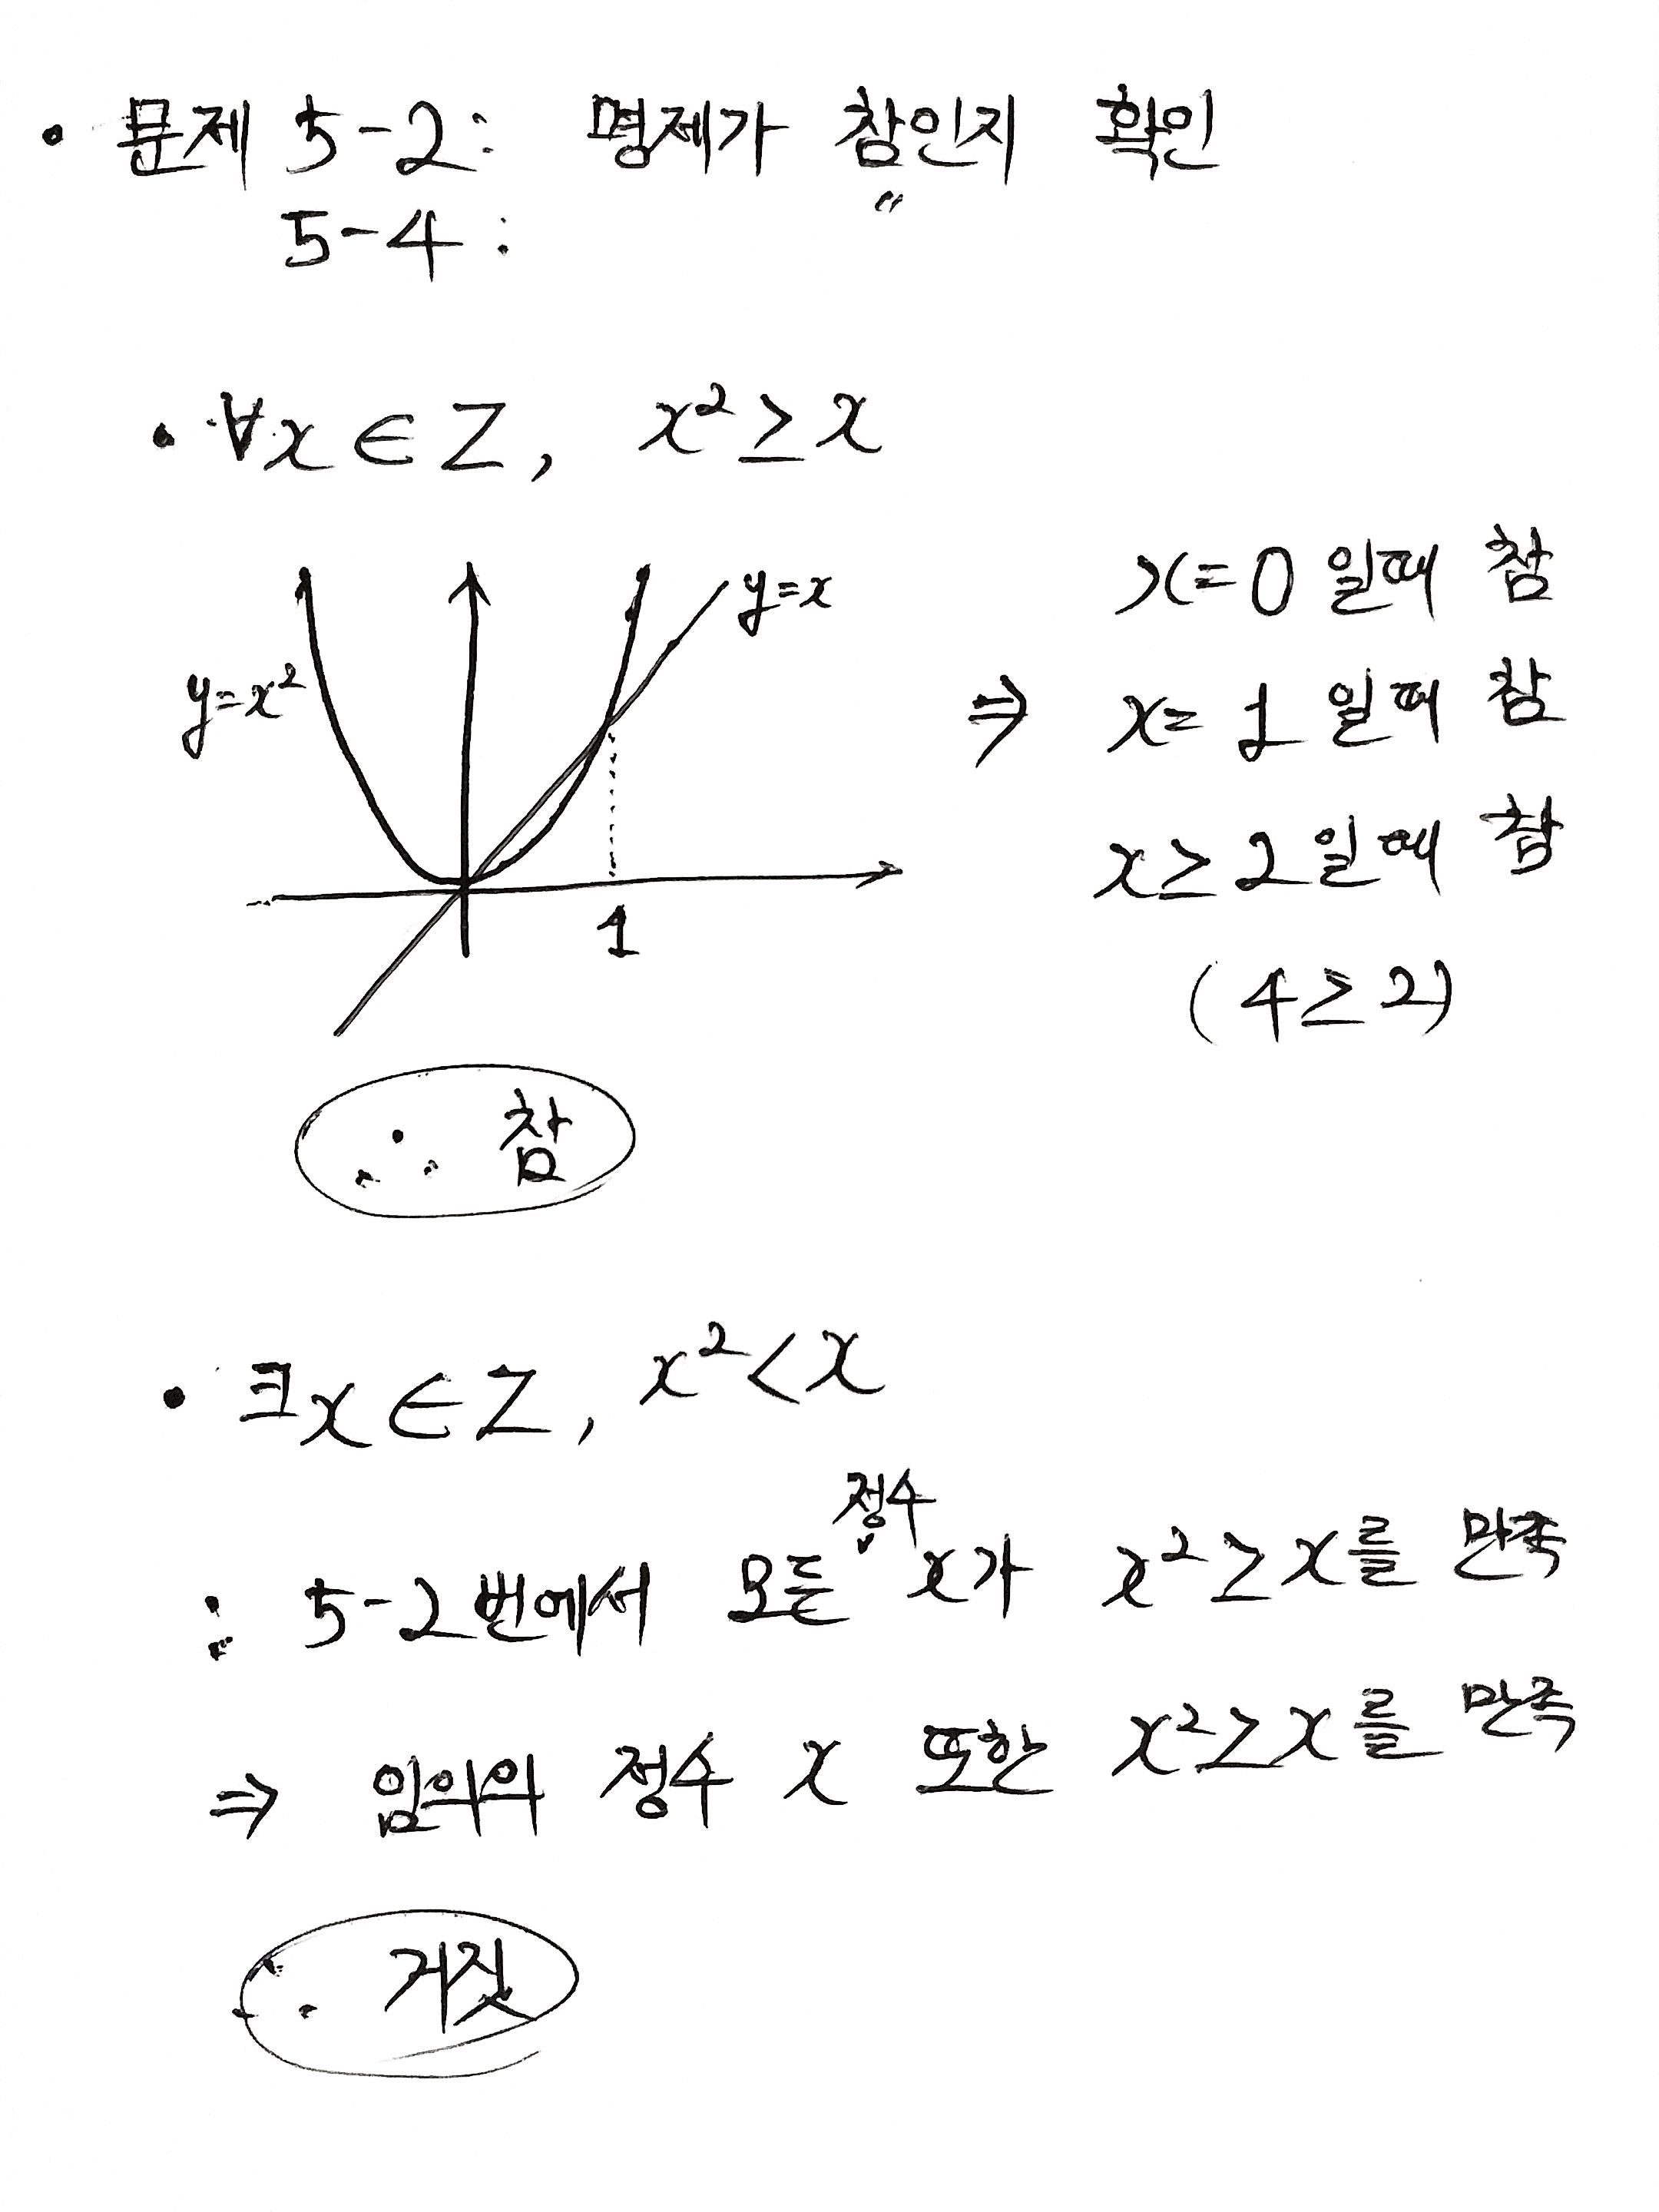 • 문제 5-2: 명제가 참인지 확인
5-4 : 〃
• ∀x ∈ Z, x² ≥ x
y=x²
y=x
1
x=0 일때 참
⇒ x=1 일때 참
x≥2일때 참
(4≥2)
∴ 참
• ∃x ∈ Z, x² < x
정수
: 5-2번에서 모든 ∨ x가 x²≥x를 만족
⇒ 임의의 정수 x 또한 x²≥x를 만족
∴ 거짓